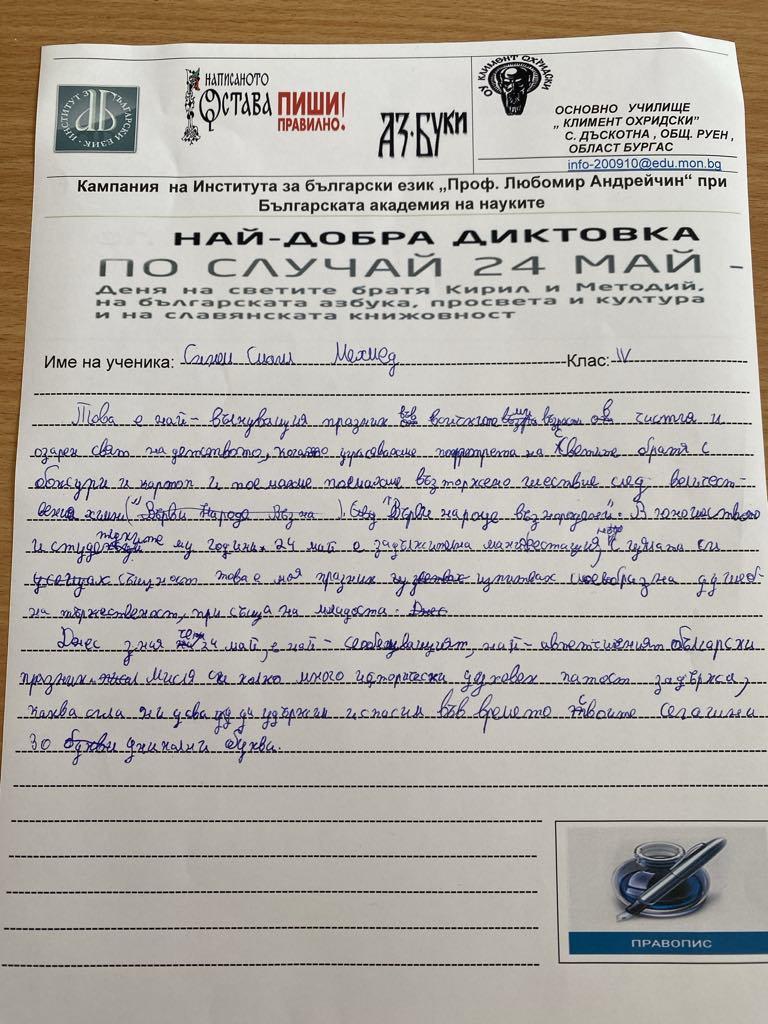 ИНСТИТУТ ЗА БЪЛГАРСКИ ЕЗИК
НАПИСАНОТО
ОСТАВА ПИШИ!
ПРАВИЛНО!
АЗ·БУКИ
ОУ КЛИМЕНТ ОХРИДСКИ
ОСНОВНО УЧИЛИЩЕ
„ КЛИМЕНТ ОХРИДСКИ"
С. ДЪСКОТНА , ОБЩ. РУЕН ,
ОБЛАСТ БУРГАС
info-200910@edu.mon.bg
Кампания на Института за български език „Проф. Любомир Андрейчин“ при
Българската академия на науките
НАЙ-ДОБРА ДИКТОВКА
ПО СЛУЧАЙ 24 МАЙ -
Деня на светите братя Кирил и Методий,
на българската азбука, просвета и култура
и на славянската книжовност
Име на ученика: Мехмед Клас: IV
Това е най - вълнуващия празник във чистия и
озарен свят на детството, когато украсявахме портрета на Светите братя с
божури и картон и поемахме възторжено шествие след величест-
вения химн "Върви народе възнародени". В юношеството
и студентските му години 24 май е задължителна манифестация, с
същност това е моя празник изпитвах своеобразна душев-
на тържественост, при на младоста.
Днес зная че 24 май, е най - българския
празник. Мисля си колко много исторически духовен патос задържа,
каква сила ни дава да удържим и спасим във времето своите сегашни
30 уникални букви.
ПРАВОПИС